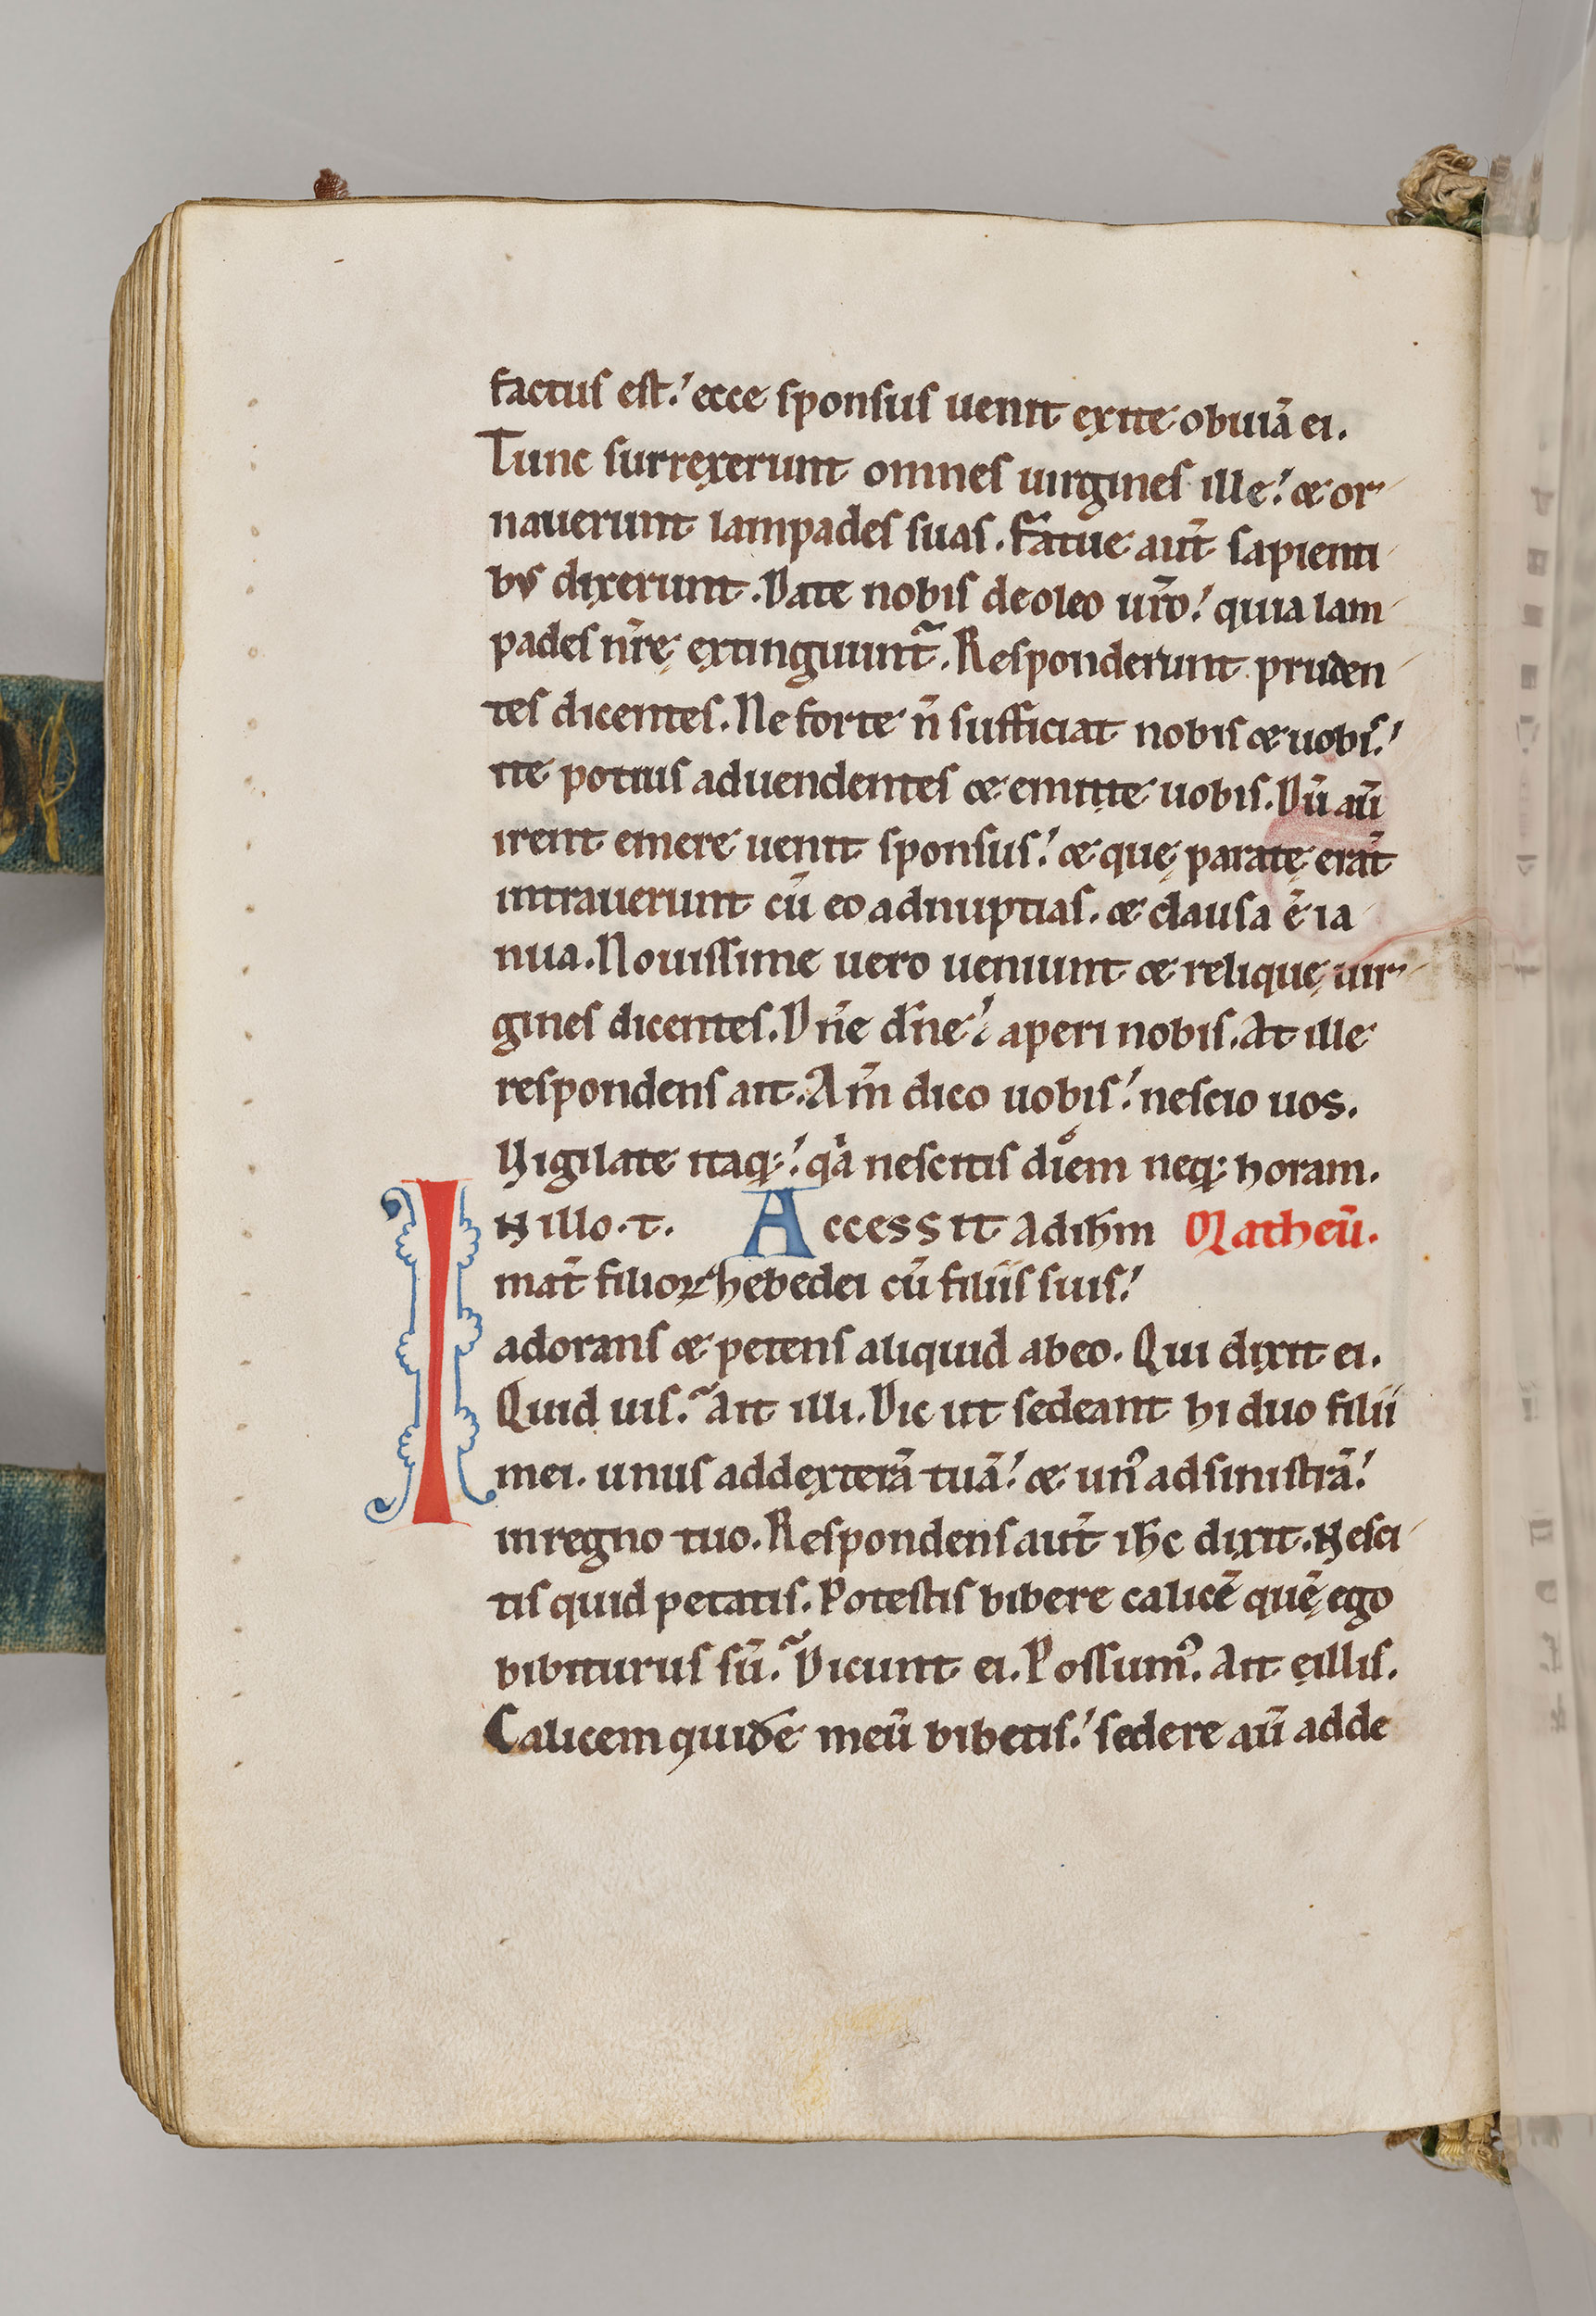 factus est: ecce sponsus uenit exite obuiā ei.
Tunc surrexerunt omnes uirgines ille: & or
nauerunt lampades suas. Fatue aut̄ sapienti
bus dixerunt. Date nobis de oleo ur̄o: quia lam
pades nr̄ę extinguunt̄. Responderunt pruden
tes dicentes. Ne forte n̄ sufficiat nobis & uobis:
ite potius ad uendentes & emite uobis. Dū aū
irent emere uenit sponsus: & quę paratę erāt
intrauerunt cū eo ad nuptias. & clausa ē ia
nua. Nouissime uero ueniunt & relique uir
gines dicentes. Dn̄e dn̄e: aperi nobis. At ille
respondens ait. Am̄ dico uobis: nescio uos.
Vigilate itaq;: qa nescitis diem neq; horam.
IN illo. t. Accessit ad ih̄m Matheū.
mat̄ filioꝝ zebedei cū filiis suis:
adorans & petens aliquid ab eo. Qui dixit ei.
Quid uis. Ait illi. Dic ut sedeant hi duo filii
mei. unus ad dexterā tuā: & un' ad sinistrā:
in regno tuo. Respondens aut̄ ih̄c dixit. Nesci
tis quid petatis. Potestis bibere calicē quē ego
bibiturus sū. Dicunt ei. Possum'. Ait eillis.
Calicem quidē meū bibetis: sedere aū ad de